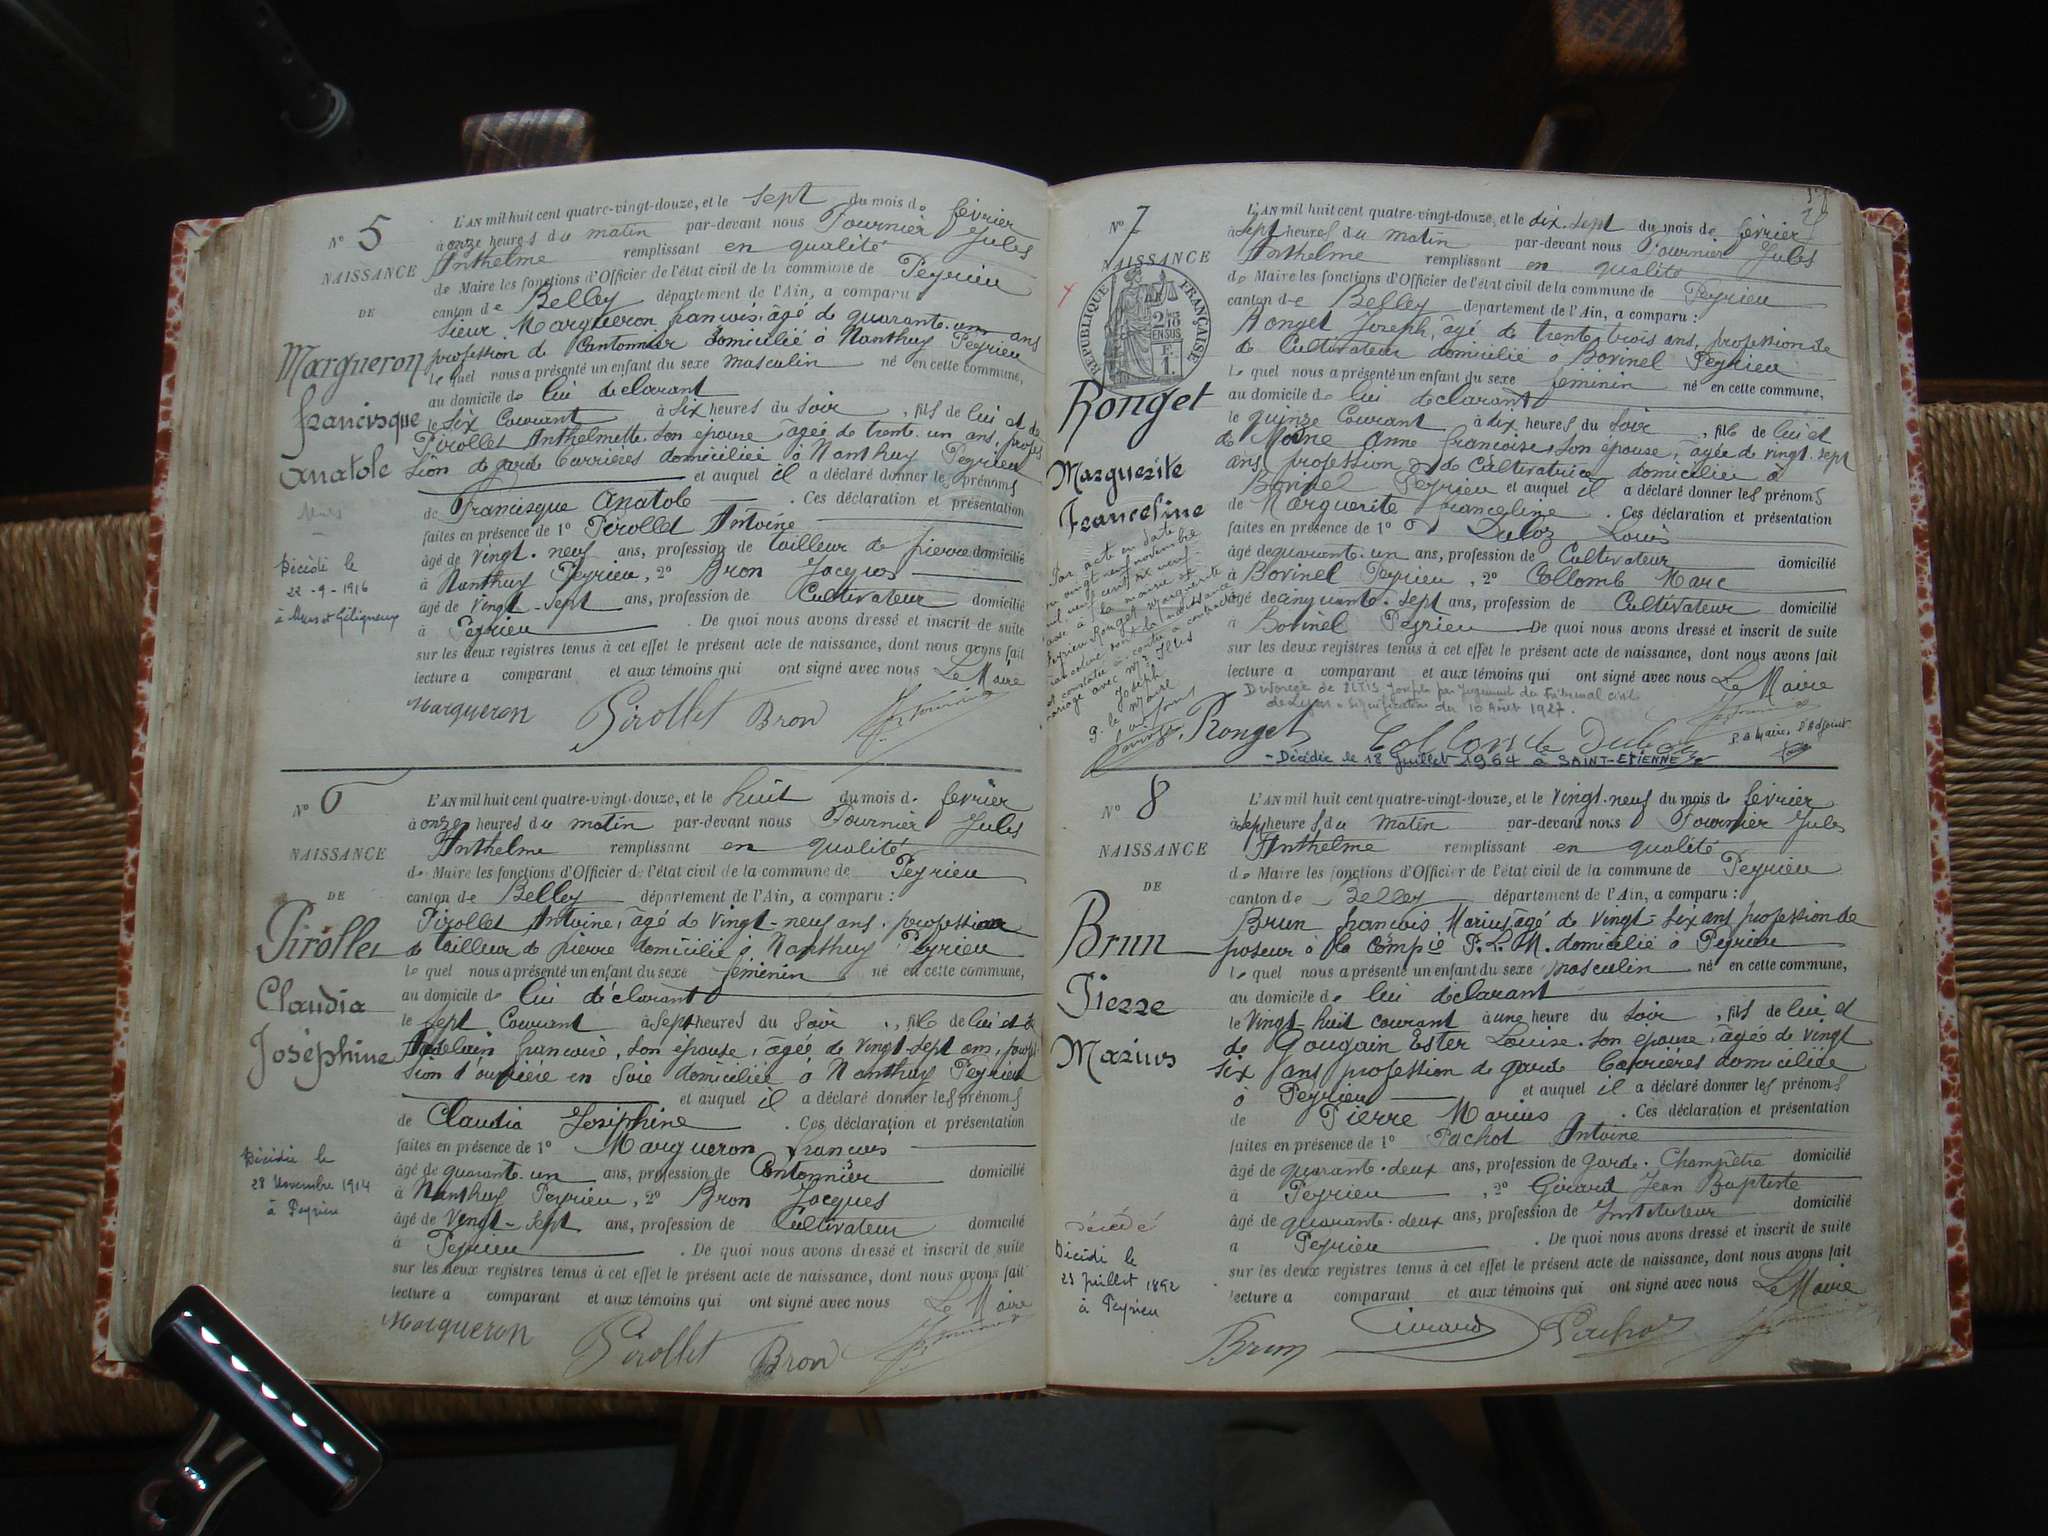 N° 5
NAISSANCE
DE
Margueron
francisque
anatole
Décédé le
22-9-1916
à
L'AN mil huit cent quatre-vingt-douze, et le sept du mois de février
à onze heures du matin par-devant nous Fournier Jules
Anthelme remplissant en qualité
de Maire les fonctions d'Officier de l'état civil de la commune de Peyrieu
canton de Belley département de l'Ain, a comparu
sieur Margueron francois, âgé de quarante-un ans
profession de Cantonnier domicilié à Nanthuy Peyrieu
lequel nous a présenté un enfant du sexe masculin né en cette commune,
au domicile de lui déclarant
le six Courant à six heures du soir, fils de lui et de
Pirollet Anthelmette, son épouse, âgée de trente-un ans, profes
sion de garde barrières domiciliée à Nanthuy Peyrieu
et auquel il a déclaré donner les prénoms
de Francisque Anatole. Ces déclaration et présentation
faites en présence de 1° Pirollet Antoine
âgé de vingt-neuf ans, profession de tailleur de pierre domicilié
à Nanthuy Peyrieu, 2° Bron Jacques
âgé de vingt-sept ans, profession de Cultivateur domicilié
à Peyrieu. De quoi nous avons dressé et inscrit de suite
sur les deux registres tenus à cet effet le présent acte de naissance, dont nous avons fait
lecture a comparant et aux témoins qui ont signé avec nous Le Maire
Margueron Pirollet Bron
N° 6
NAISSANCE
DE
Pirollet
Claudia
Joséphine
Décédée le
28 Novembre 1914
à Peyrieu
L'AN mil huit cent quatre-vingt-douze, et le huit du mois de février
à onze heures du matin par-devant nous Fournier Jules
Anthelme remplissant en qualité
de Maire les fonctions d'Officier de l'état civil de la commune de Peyrieu
canton de Belley département de l'Ain, a comparu :
Pirollet Antoine, âgé de vingt-neuf ans, profession
de tailleur de pierre domicilié à Nanthuy Peyrieu
lequel nous a présenté un enfant du sexe féminin né en cette commune,
au domicile de lui déclarant
le sept Courant à sept heures du soir, fille de lui et de
francoise, son épouse, âgée de vingt-sept ans, profes
sion d'ouvrière en soie domiciliée à Nanthuy Peyrieu
et auquel il a déclaré donner les prénoms
de Claudia Joséphine. Ces déclaration et présentation
faites en présence de 1° Margueron francois
âgé de quarante-un ans, profession de Cantonnier domicilié
à Nanthuy Peyrieu, 2° Bron Jacques
âgé de vingt-sept ans, profession de Cultivateur domicilié
à Peyrieu. De quoi nous avons dressé et inscrit de suite
sur les deux registres tenus à cet effet le présent acte de naissance, dont nous avons fait
lecture a comparant et aux témoins qui ont signé avec nous Le Maire
Margueron Pirollet Bron
N° 7
NAISSANCE
RÉPUBLIQUE FRANÇAISE
2/10 EN SUS
F. 1.
Ronget
Marguerite
Franceline
Par acte en date
du vingt neuf novembre
mil neuf cent dix neuf
à la mairie de
Peyrieu Ronget Marguerite
Franceline dont la naissance
est constatée ci-contre a contracté
mariage avec Mr Iltis
Joseph
P. le Maire
L'AN mil huit cent quatre-vingt-douze, et le dix-sept du mois de février
à sept heures du matin par-devant nous Fournier Jules
Anthelme remplissant en qualité
de Maire les fonctions d'Officier de l'état civil de la commune de Peyrieu
canton de Belley département de l'Ain, a comparu :
Ronget Joseph, âgé de trente-trois ans, profession de
de Cultivateur domicilié à Bovinel Peyrieu
lequel nous a présenté un enfant du sexe féminin né en cette commune,
au domicile de lui déclarant
le quinze Courant à dix heures du soir, fille de lui et
de Moine Anne francoise, son épouse, âgée de vingt-sept
ans, profession de Cultivatrice domiciliée à
Bovinel Peyrieu et auquel il a déclaré donner les prénoms
de Marguerite franceline. Ces déclaration et présentation
faites en présence de 1° Duloz Louis
âgé de quarante-un ans, profession de Cultivateur domicilié
à Bovinel Peyrieu, 2° Collomb Marc
âgé de cinquante-sept ans, profession de Cultivateur domicilié
à Bovinel Peyrieu De quoi nous avons dressé et inscrit de suite
sur les deux registres tenus à cet effet le présent acte de naissance, dont nous avons fait
lecture a comparant et aux témoins qui ont signé avec nous Le Maire
Divorcée de ILTIS Joseph par jugement du Tribunal civil
de Lyon. Signification du 10 Août 1927.
P. le Maire, l'Adjoint
Ronget Collomb Duloz
- Décédée le 18 juillet 1964 à SAINT-ETIENNE
N° 8
NAISSANCE
DE
Brun
Pierre
Marius
décédé
Décédé le
23 juillet 1892
à Peyrieu
L'AN mil huit cent quatre-vingt-douze, et le vingt-neuf du mois de février
à sept heures du matin par-devant nous Fournier Jules
Anthelme remplissant en qualité
de Maire les fonctions d'Officier de l'état civil de la commune de Peyrieu
canton de Belley département de l'Ain, a comparu :
Brun francois Marius, âgé de vingt-six ans profession de
poseur à la Compie P. L. M. domicilié à Peyrieu
lequel nous a présenté un enfant du sexe masculin né en cette commune,
au domicile de lui déclarant
le vingt-huit courant à une heure du soir, fils de lui et
de Goujain Ester Louise son épouse, âgée de vingt
six ans profession de garde barrières domiciliée
à Peyrieu et auquel il a déclaré donner les prénoms
de Pierre Marius. Ces déclaration et présentation
faites en présence de 1° Pochot Antoine
âgé de quarante-deux ans, profession de garde-Champêtre domicilié
à Peyrieu, 2° Girard Jean Baptiste
âgé de quarante-deux ans, profession de Instituteur domicilié
à Peyrieu. De quoi nous avons dressé et inscrit de suite
sur les deux registres tenus à cet effet le présent acte de naissance, dont nous avons fait
lecture a comparant et aux témoins qui ont signé avec nous Le Maire
Brun Girard Pochot